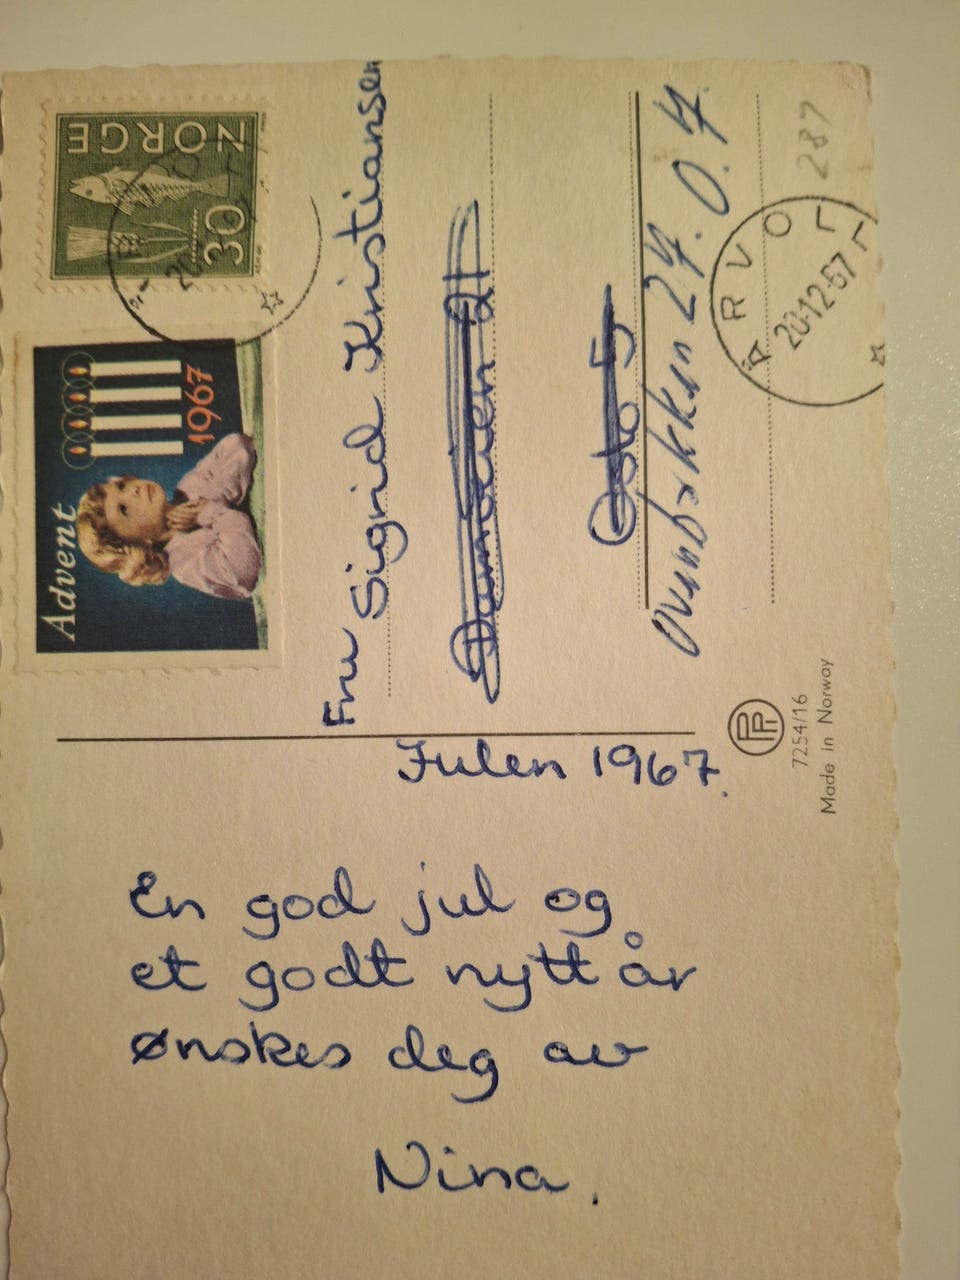 NORGE
30
Advent
1967
Fru
Sigrid Kristiansen
Oslo 5
24. O. 4.
287
ÅRVOLL
20-12-67
7254/16
Made in Norway
Julen 1967.
En god jul og
et godt nytt år
ønskes deg av
Nina.